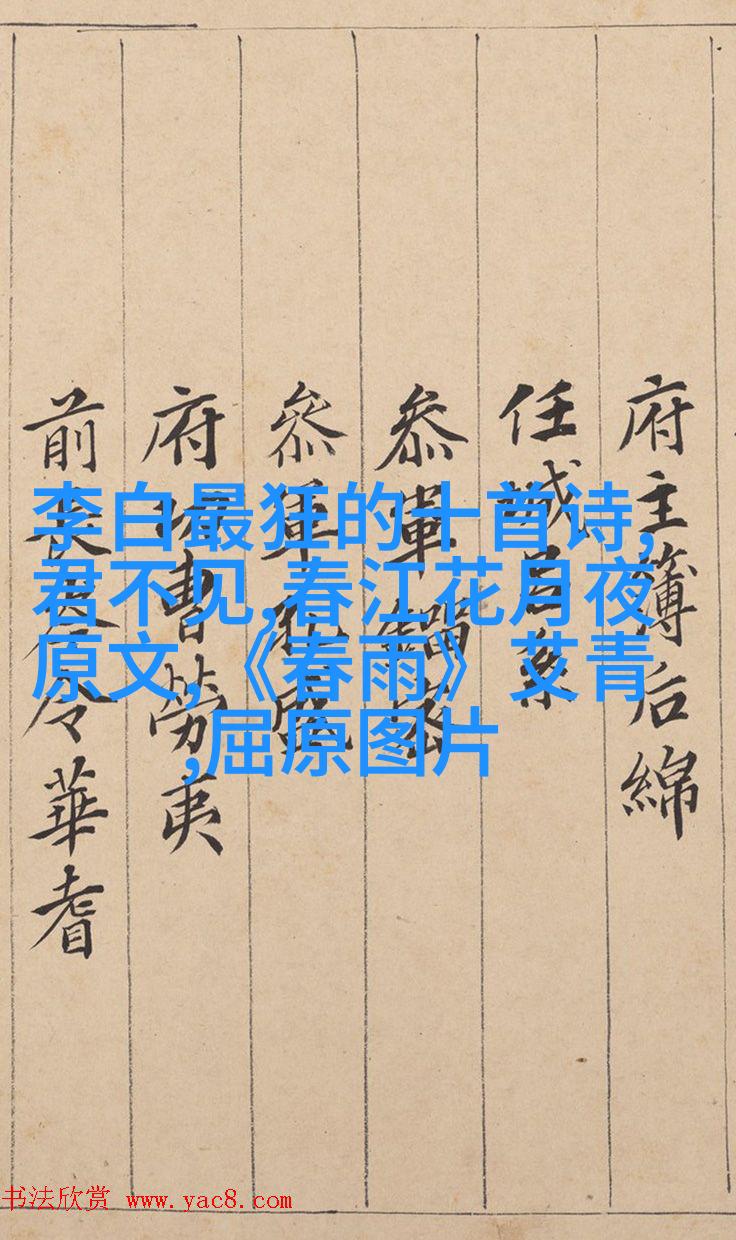 李白最狂的十首诗,
君不见,春江花月夜
原文,《春雨》艾青
,屈原图片
府主簿后綿
任城呂系
叅軍密
叅軍孔盛
府功曹勞夷
前長岑令華耆
书法欣赏 www.yac8.com